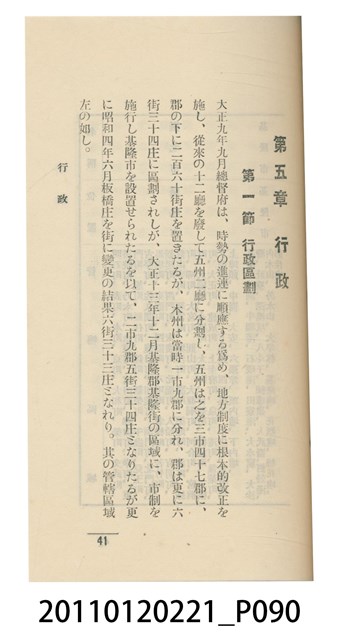 第五章 行政
第一節 行政區劃
大正九年九月總督府は、時勢の進運に順應する爲め、地方制度に根本的改正を
施し、從來の十二廳を廢して五州二廳に分劃し、五州は之を三市四十七郡に、
郡の下に二百六十街庄を置きたるが、本州は當時一市九郡に分れ、郡は更に六
街三十四庄に區劃されしが、大正十三年十二月基隆郡基隆街の區域に、市制を
施行し基隆市を設置せられたるを以て、二市九郡五街三十四庄となりたるが更
に昭和四年六月板橋庄を街に變更の結果六街三十三庄となれり。其の管轄區域
左の如し。
行政
41
20110120221_P090